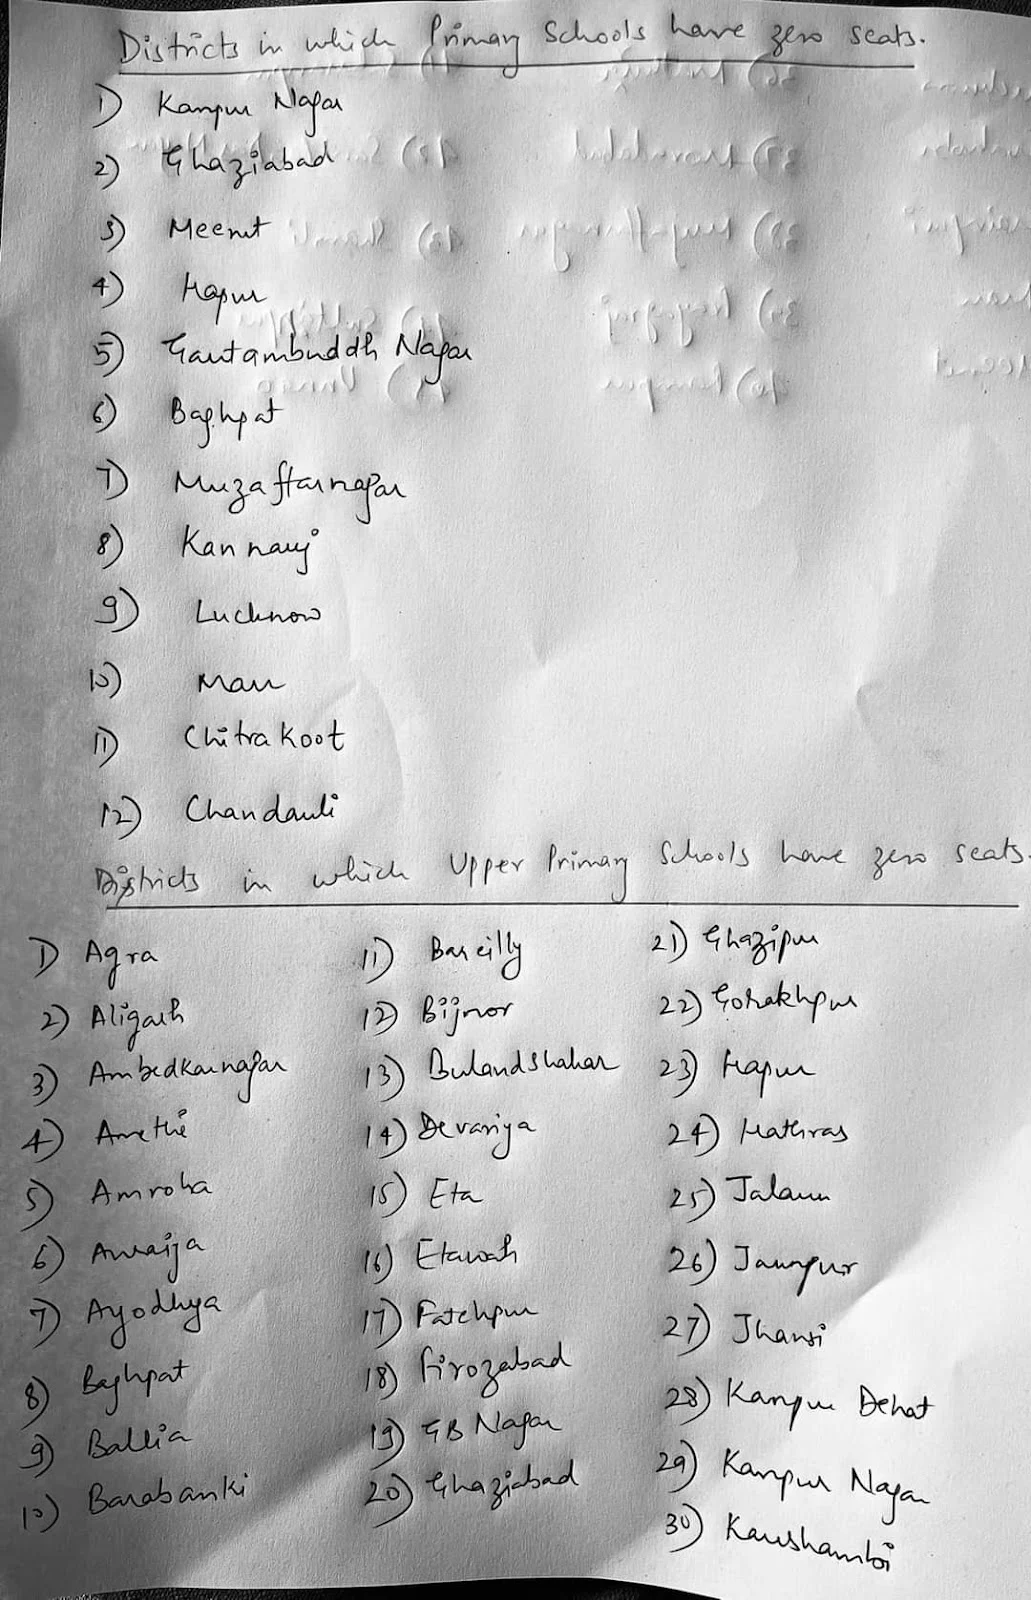 Districts in which Primary Schools have zero seats.
1) Kanpur Nagar
2) Ghaziabad
3) Meerut
4) Hapur
5) Gautambuddh Nagar
6) Baghpat
7) Muzaffarnagar
8) Kannauj
9) Lucknow
10) Mau
11) Chitrakoot
12) Chandauli
Districts in which Upper Primary Schools have zero seats.
1) Agra
2) Aligarh
3) Ambedkarnagar
4) Amethi
5) Amroha
6) Auraiya
7) Ayodhya
8) Baghpat
9) Ballia
10) Barabanki
11) Bareilly
12) Bijnor
13) Bulandshahar
14) Devariya
15) Eta
16) Etawah
17) Fatehpur
18) Firozabad
19) GB Nagar
20) Ghaziabad
21) Ghazipur
22) Gorakhpur
23) Hapur
24) Hathras
25) Jalaun
26) Jaunpur
27) Jhansi
28) Kanpur Dehat
29) Kanpur Nagar
30) Kaushambi